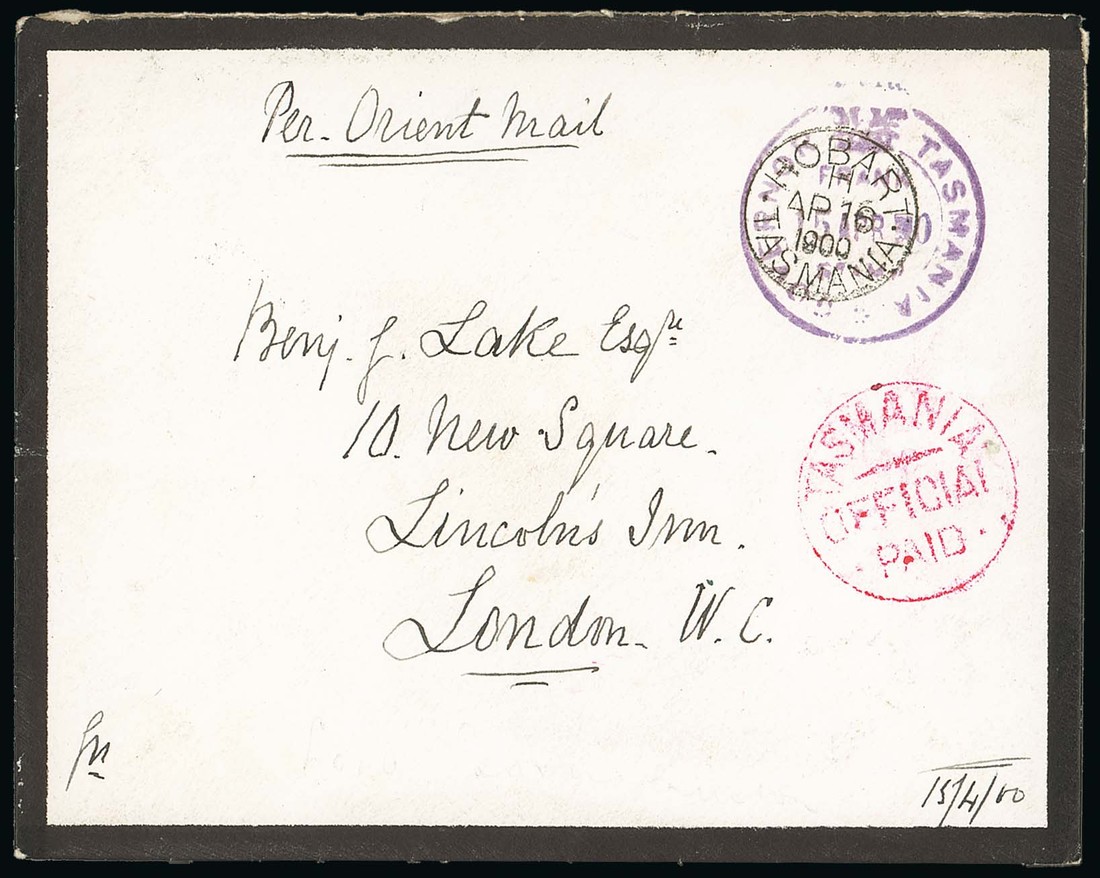 Per. Orient Mail
TASMANIA
HOBART
H
AP 16
1900
TASMANIA
Benj. J. Lake Esqre
10. New Square.
TASMANIA
OFFICIAL
PAID
Lincoln's Inn.
London. W. C.
15/4/00